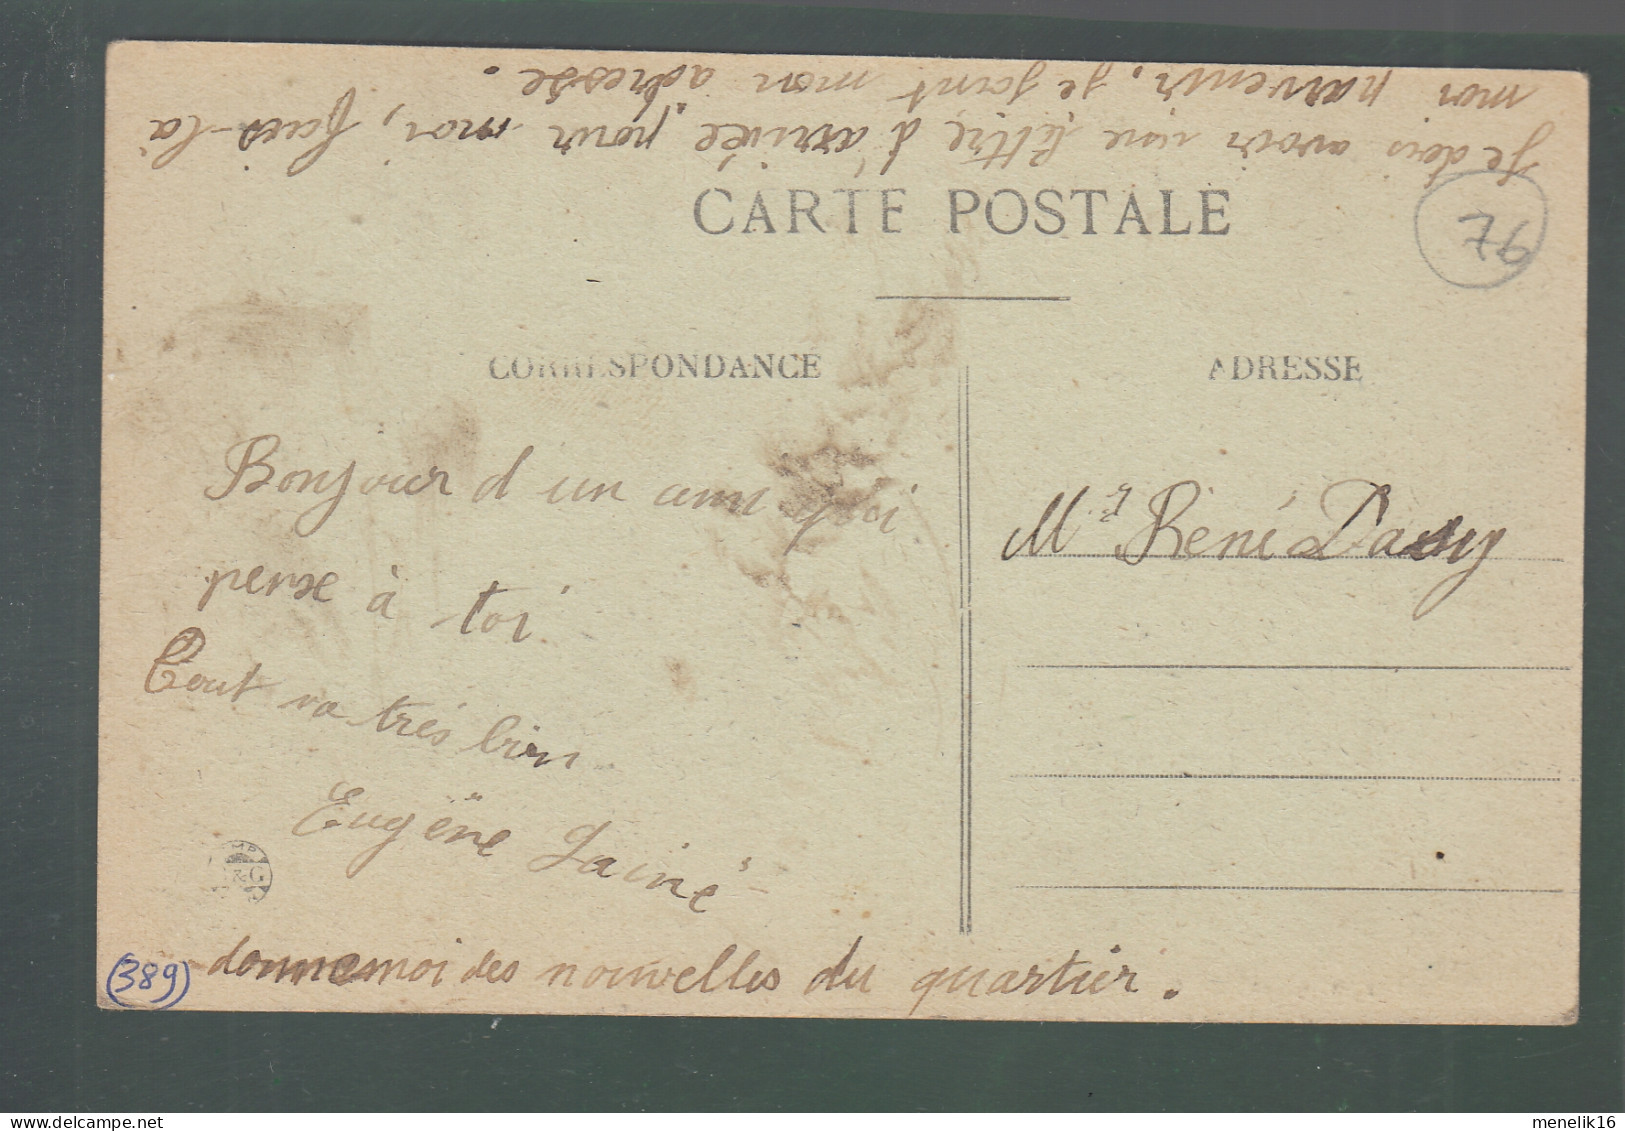 Je dois avoir une lettre d'arrivée pour moi, fais-la
moi parvenir, je joint mon adresse.
CARTE POSTALE
76
CORRESPONDANCE
ADRESSE
Bonjour d un ami qui
pense à toi
Tout va très bien
Eugëne Lainé
donne moi des nouvelles du quartier.
Mr René Dassy
&G
(389)
menelik16